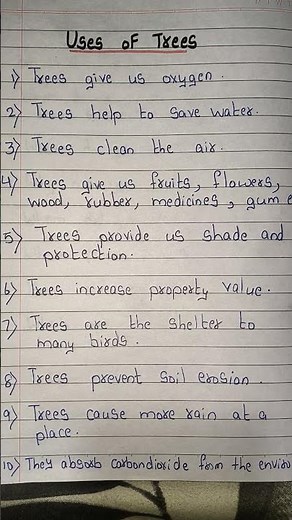 Uses of Trees
1) Trees give us oxygen.
2) Trees help to save water.
3) Trees clean the air.
4) Trees give us fruits, flowers,
wood, rubber, medicines, gum
5) Trees provide us shade and
protection.
6) Trees increase property value.
7) Trees are the shelter to
many birds.
8) Trees prevent soil erosion.
9) Trees cause more rain at a
place.
10) They absorb carbondioxide from the enviro